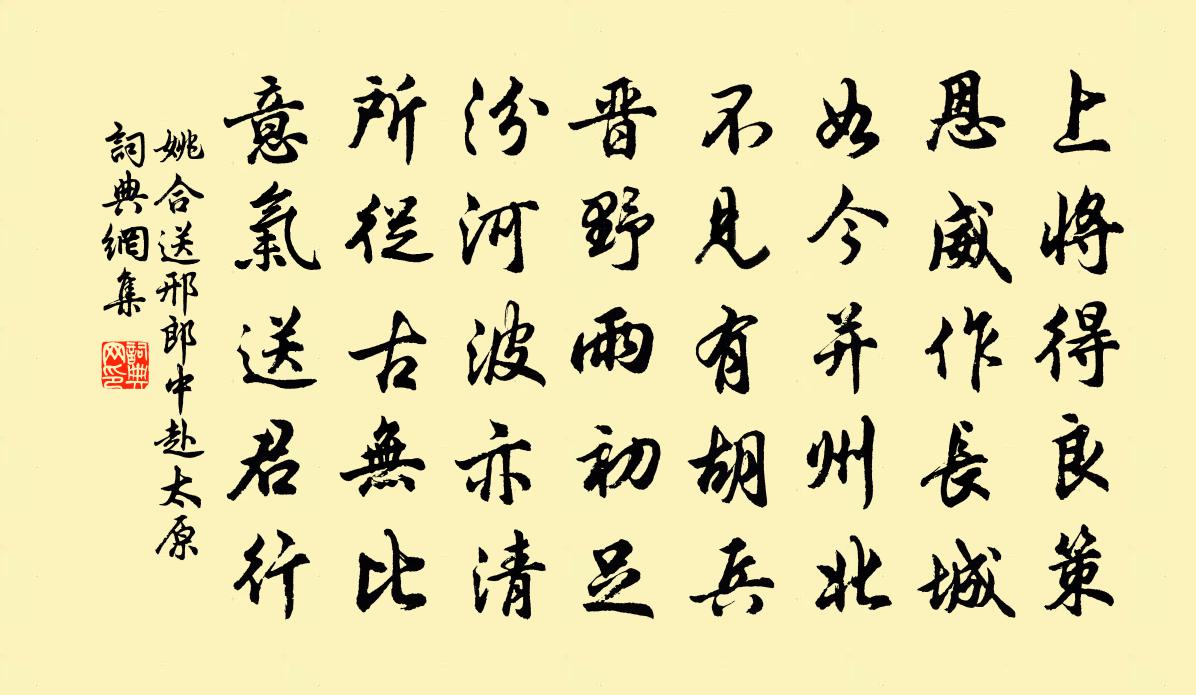 上將得良策
恩威作長城
如今并州北
不見有胡兵
晋野雨初足
汾河波亦清
所從古無比
意氣送君行
姚合送邢郎中赴太原
詞典網集
詞典
网印